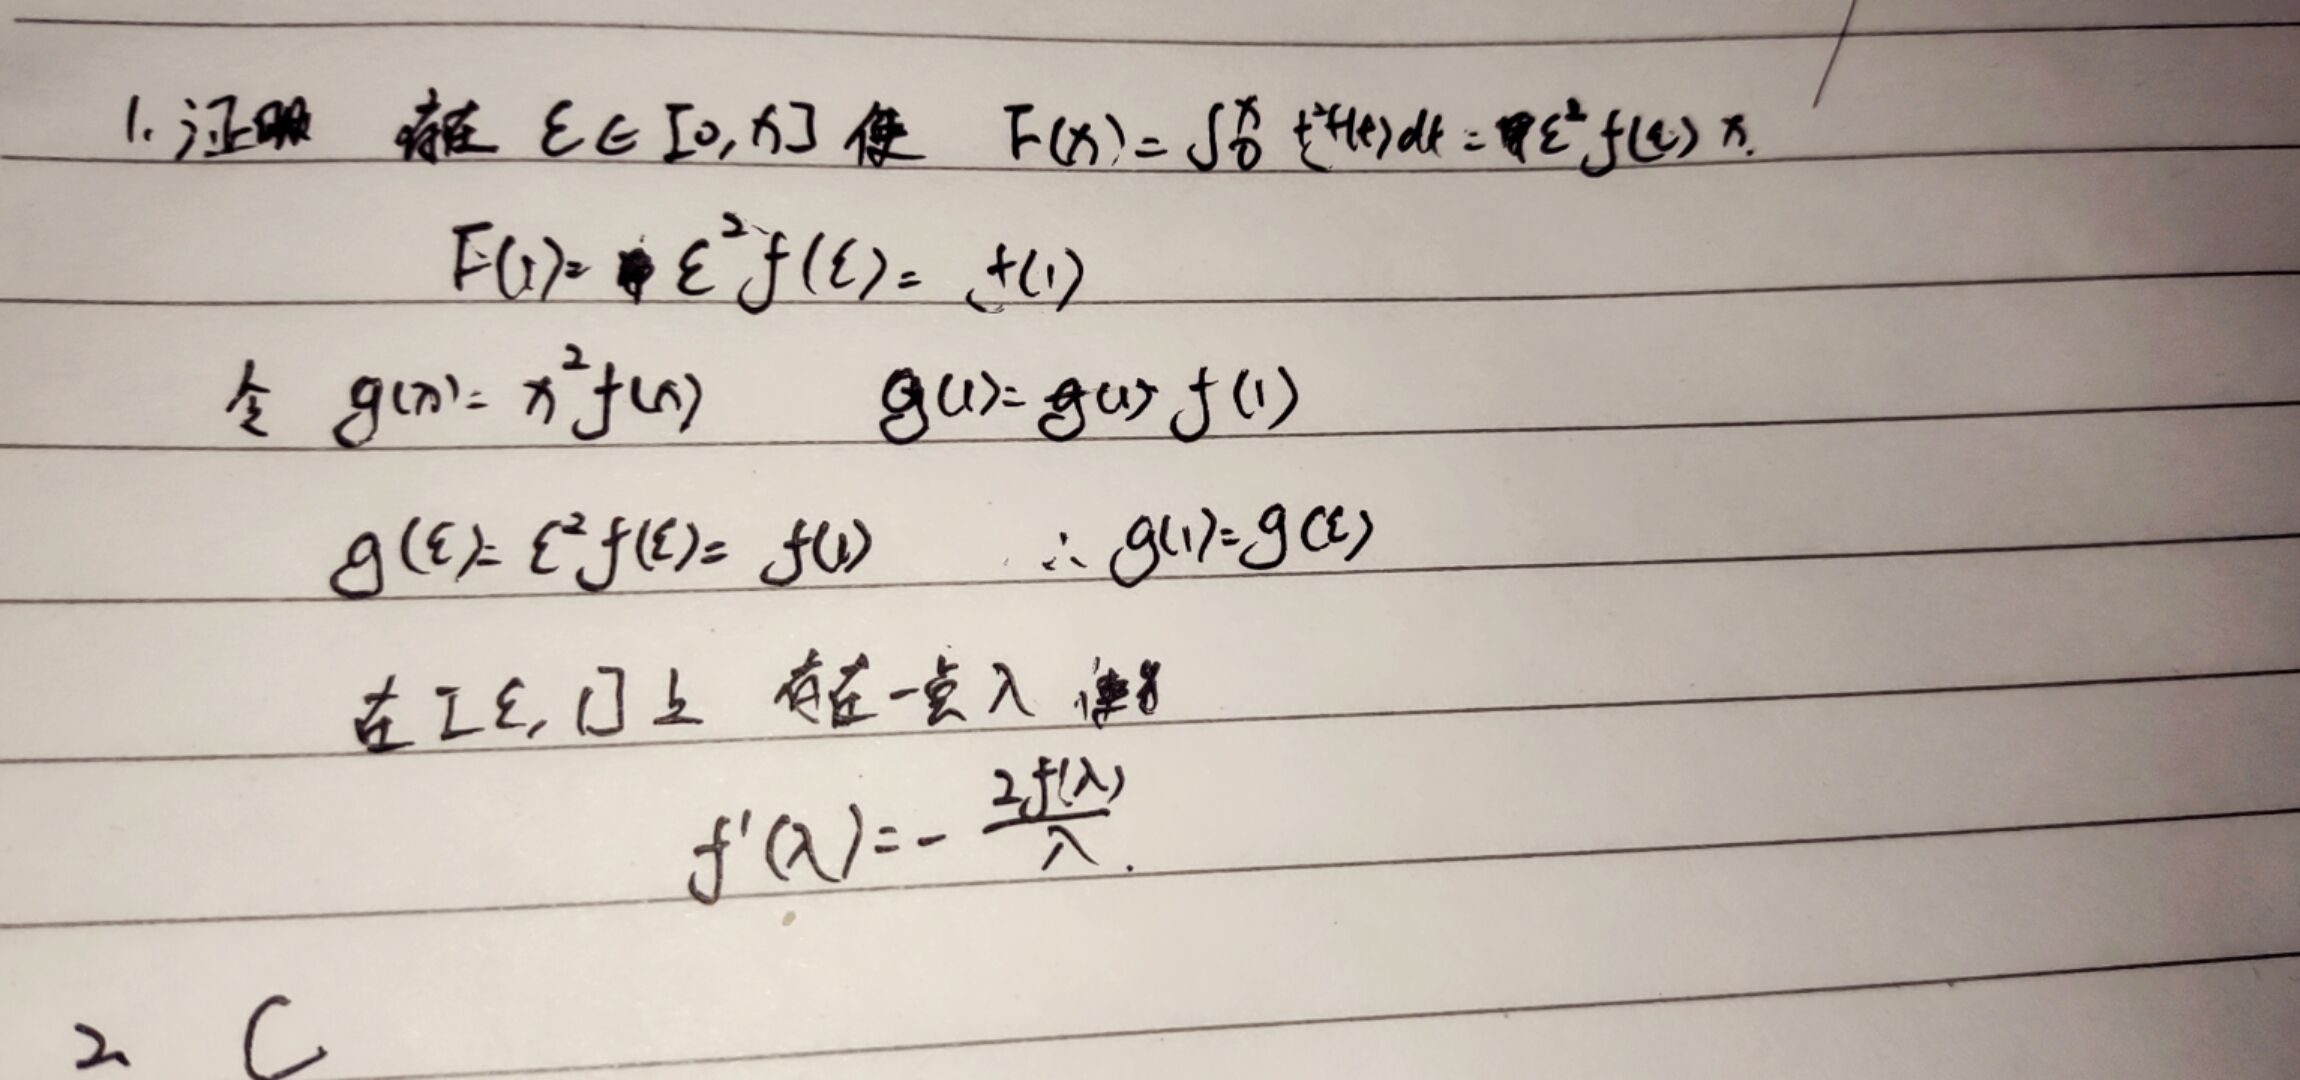 1. 证明 存在 ξ∈[0,x] 使 F(x)=∫₀ˣ t²f(t)dt = ξ²f(ξ) x.
F(1)= ξ²f(ξ)= f(1)
令 g(x)= x²f(x) g(1)= f(1)
g(ξ)= ξ²f(ξ)= f(1) ∴ g(1)=g(ξ)
在[ξ,1]上 存在一点λ 使
f'(λ)=- 2f(λ)/λ.
2 C